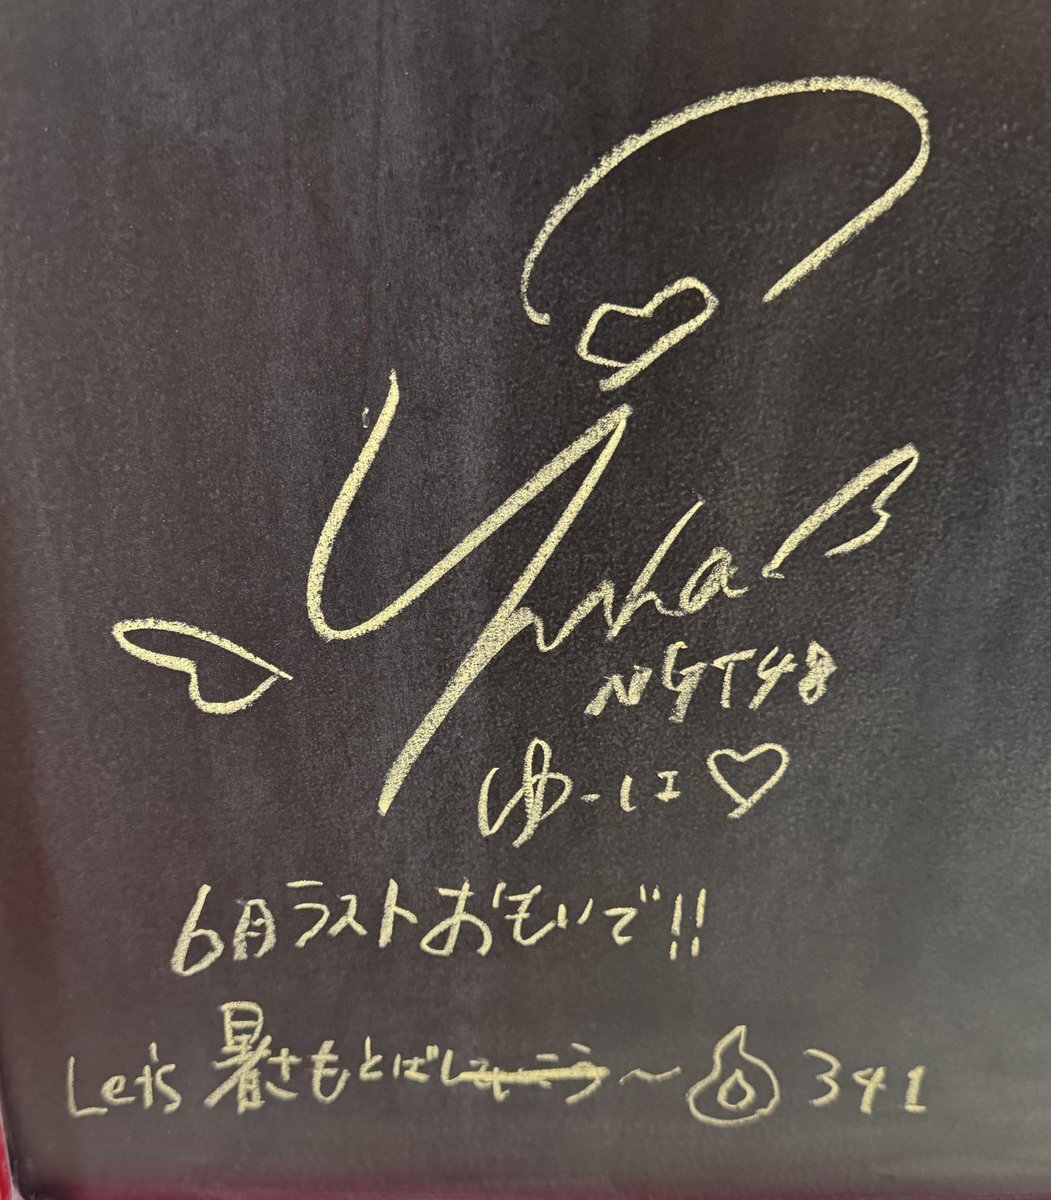 Yuka
NGT48
ゆーに♡
6月ラストおもいで!!
Let's 暑さもとばしていこう〜 341